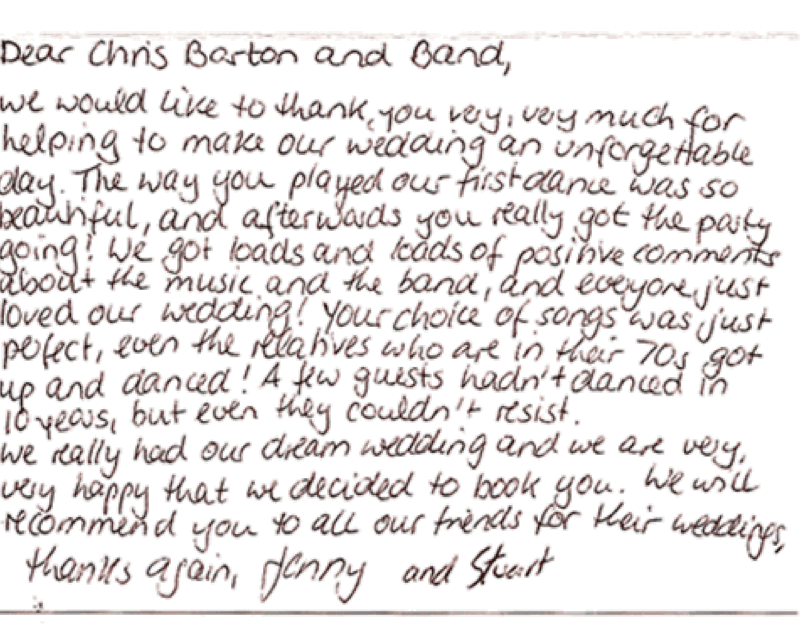 Dear Chris Barton and Band,
we would like to thank you very, very much for
helping to make our wedding an unforgettable
day. The way you played our first dance was so
beautiful, and afterwards you really got the party
going! We got loads and loads of positive comments
about the music and the band, and everyone just
loved our wedding! Your choice of songs was just
perfect, even the relatives who are in their 70s got
up and danced! A few guests hadn't danced in
10 years, but even they couldn't resist.
we really had our dream wedding and we are very,
very happy that we decided to book you. We will
recommend you to all our friends for their weddings,
thanks again, Jenny and Stuart